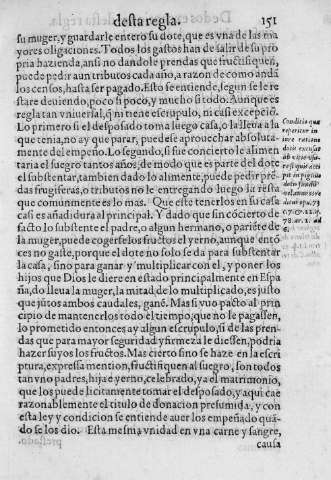 desta regla. 151
su muger, y guardarle entero su dote, que es vna de las ma
yores oligaciones. Todos los gastos han de salir de su pro
pria hazienda, ansi no dandole prendas que fructifiquen,
puede pedir aun tributos cada año, a razon de como andā
los censos, hasta ser pagado. Esto se entiende, segun se le re
stare deuiendo, poco si poco, y mucho si todo. Aunque es
regla tan vniuersal, q̃ ni tiene escrupulo, ni casi excepciõ.
Lo primero si el desposado toma luego casa, o la lleua a la
que tenia, no ay que parar, puede se aprouechar absoluta-
mente del empeño. Lo segundo, si fue concierto le alimen
taria el suegro tantos años, de modo que es parte del dote
el substentar, tambien dado lo alimente, puede pedir pré
das frugiferas, o tributos no le entregando luego la resta
que comunmente es lo mas. Que este tenerlos en su casa
casi es añadidura al principal. Y dado que sin cõcierto de
facto lo substente el padre, o algun hermano, o pariẽte de
la muger, puede cogerse los fructos el yerno, aunque entõ
ces no gaste, porque el dote no solo se da para substentar
la casa, sino para ganar y multiplicar con el, y poner los
hijos que Dios le diere en estado principalmente en Espa
ña, do lleua la muger, la mitad, de lo multiplicado, es justo
que jūtos ambos caudales, ganē. Mas si vuo pacto al prin
cipio de mantenerlos todo el tiempo, que no le pagassen,
lo prometido entonces ay algun escrupulo, si de las pren-
das que para mayor seguridad y firmeza le diessen, podria
hazer suyos los fructos. Mas cierto sino se haze en la escri
ptura, expressa mention, fructifiquen al suegro, son todos
tan vno padres, hija e yerno, celebrado, ya el matrimonio,
que los puede licitamente tomar el desposado, y aqui cae
razonablemente el titulo de donacion presumida, y con
esta ley y condicion se entiende auer los empeñado quā-
do se los dio. Esta mesma vnidad en vna carne y sangre,
causa
Conditio que
reperitur in
iure ratione
dotis excusat